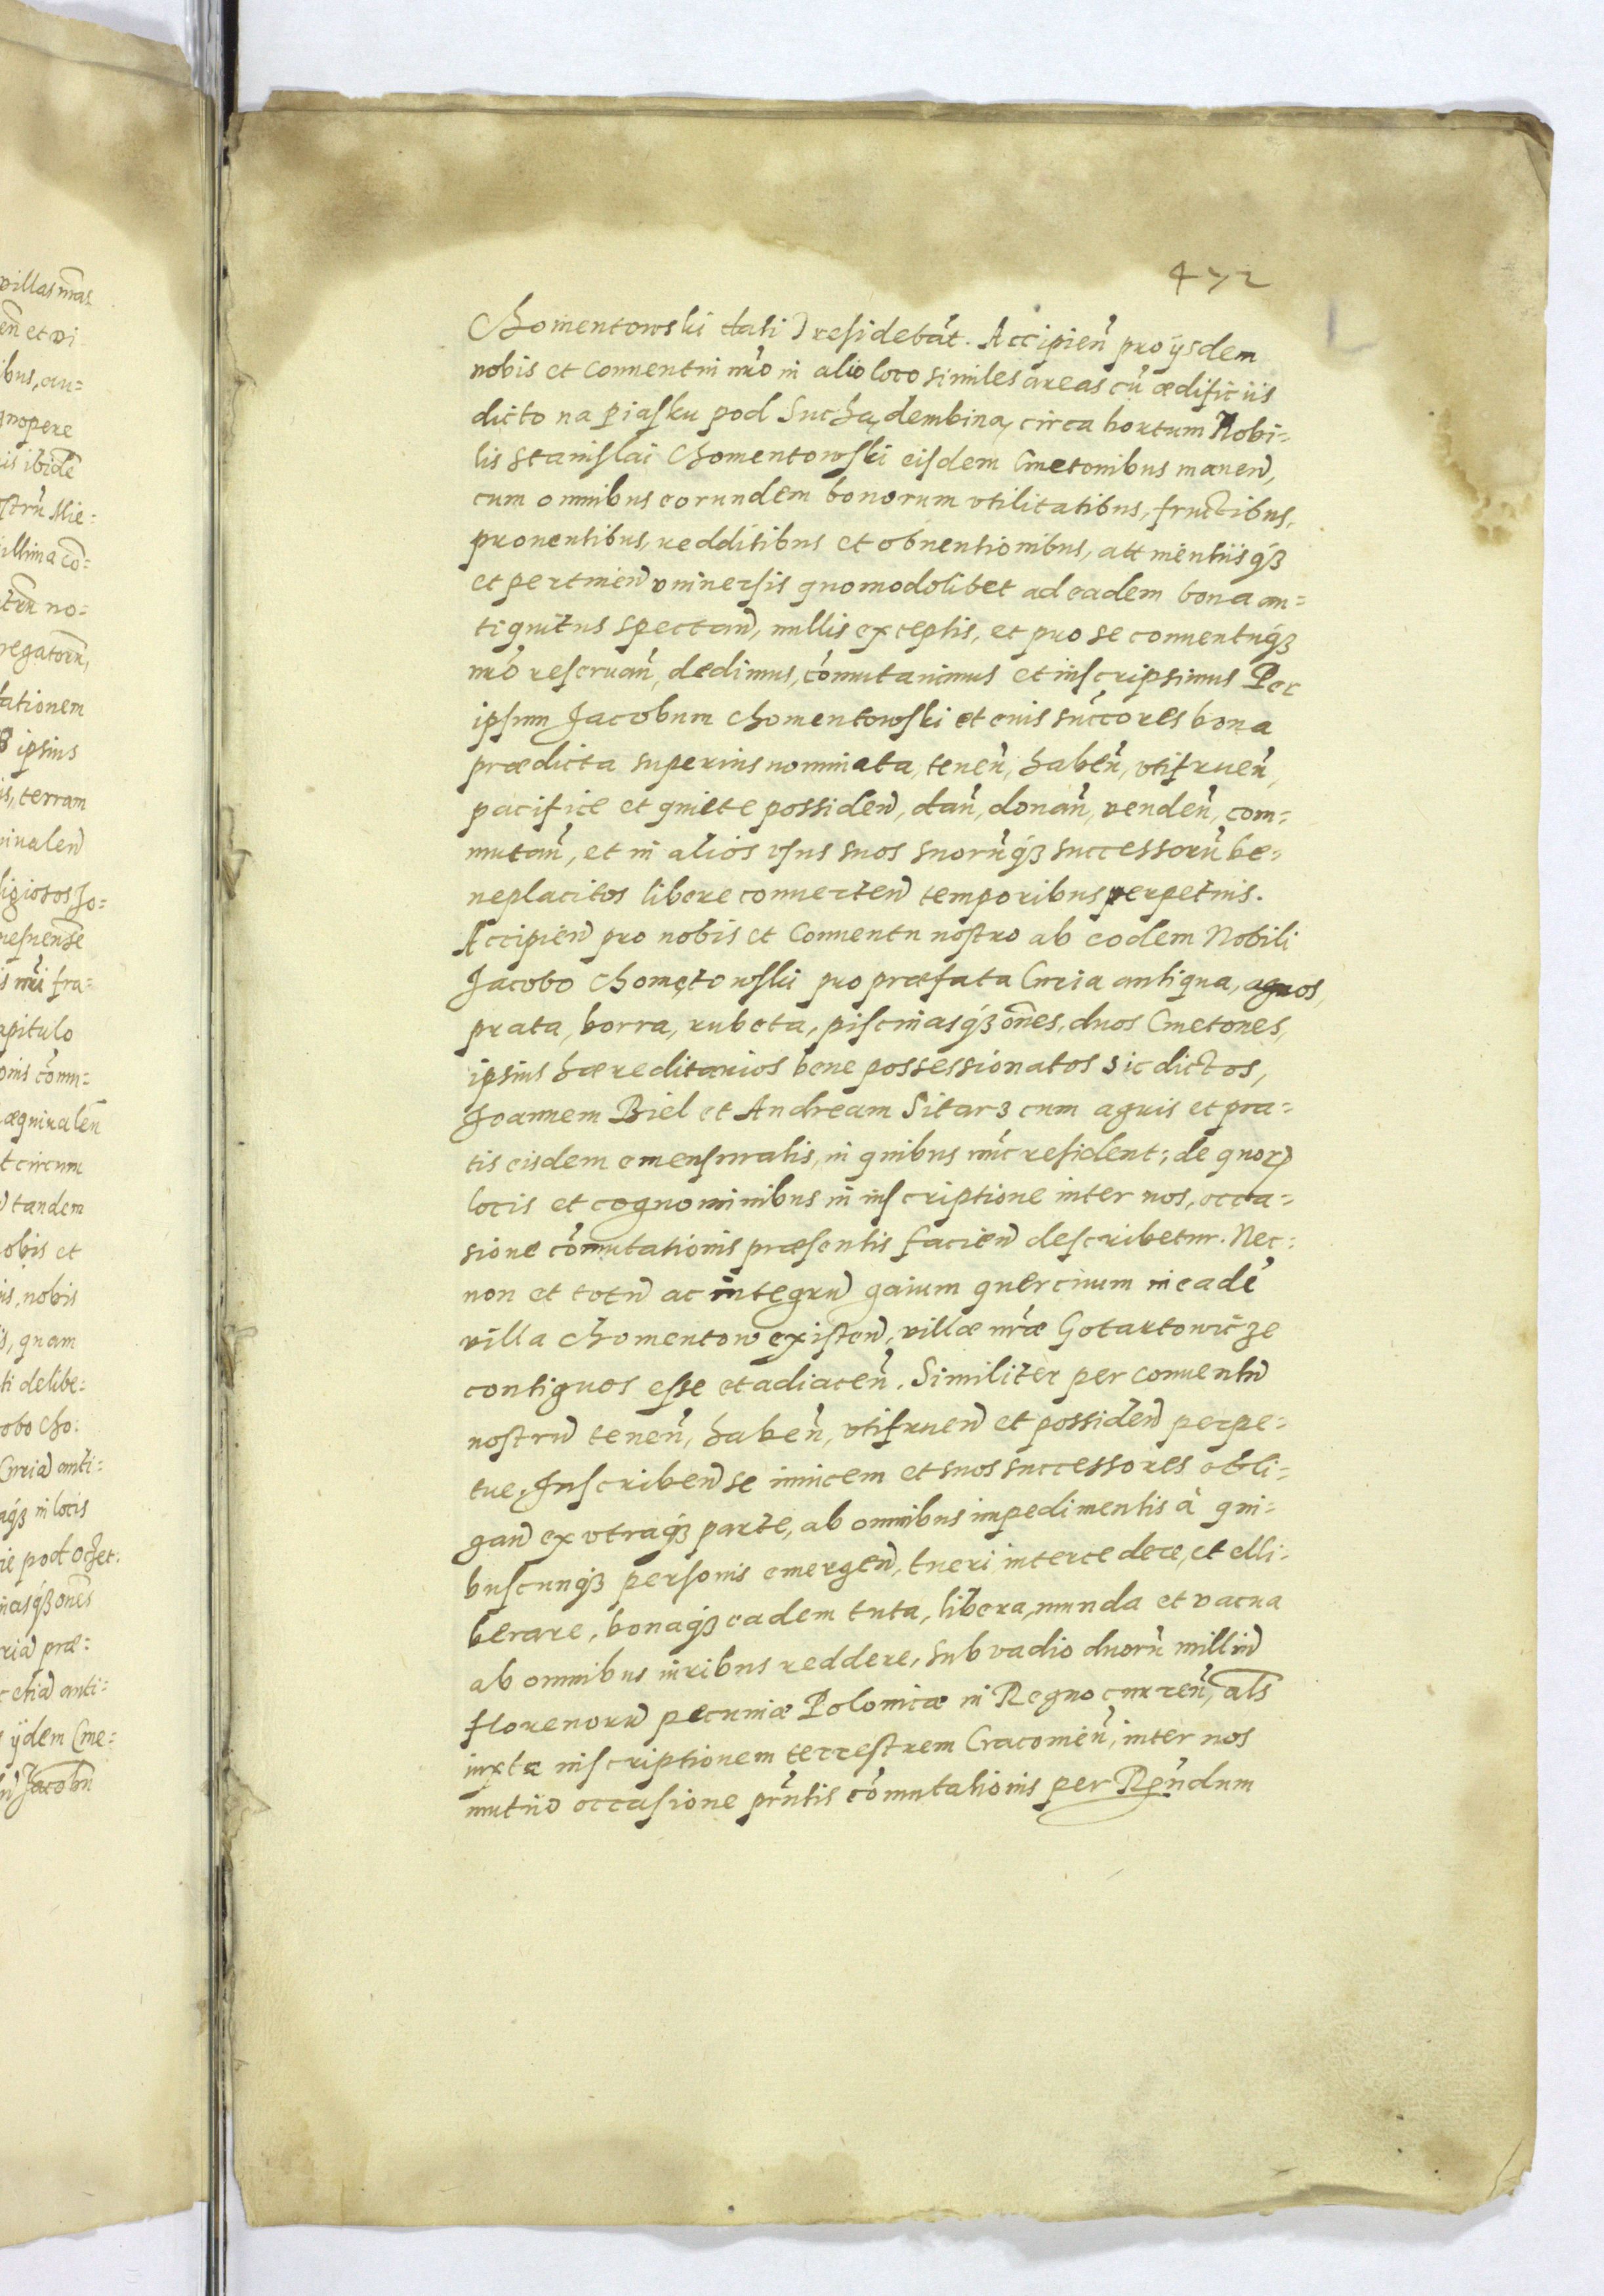 472
Chomentowski dati) residebãt. Accipieñ pro ijsdem
nobis et Conuentui nrõ in alio loco similes areas cũ ædificiis
dicto na piasku pod Suchą dembiną circa hortum Nobi=
lis Stanislai Chomentowski eisdem Cmetonibus maneñ,
cum omnibus eorundem bonorum vtilitatibus, fructibus,
prouentibus, redditibus et obuentionibus, attinentiisq́ꝫ
et pertineñ vniuersis quomodolibet ad eadem bona an=
tiquitus spectañ, nullis exceptis, et pro se conuentuq́ꝫ
nrõ reseruañ, dedimus, cõmutauimus et inscripsimus Per
ipsum Jacobum Chomentowski et euis succ̃ores bona
prædicta superius nominata, teneñ, habeñ, vtifrueñ,
pacifice et quiete possideñ, dañ, donañ, vendeñ, com=
mutañ, et in alios vsus suos suorũq́ꝫ successorũ be=
neplacitos libere conuerteñ temporibus perpetuis.
Accipieñ pro nobis et Conuentu nostro ab eodem Nobili
Jacobo Chomętowski pro præfata Curia antiqua, agros,
prata, borra, rubeta, piscinasq́ꝫ oñes, duos Cmetones,
ipsius hæreditarios bene possessionatos sic dictos,
Joannem Biel et Andream Sitarz cum agris et pra=
tis eisdem emensuratis, in quibus nũc resident; de quorꝝ
locis et cognominibus in inscriptione inter nos, occa=
sione cõmutationis præsentis facieñ describetur. Nec=
non et totũ ac integrũ gaium quercinum in eadẽ
villa Chomentow existeñ, villæ nr̃æ Gotartowicze
contiguos esse et adiaceñ. Similiter per conuentũ
nostrũ teneñ, habeñ, vtifrueñ et possideñ perpe=
tue, Inscribeñ se inuicem et suos successores obli=
gañ ex vtraq́ꝫ parte, ab omnibus impedimentis à qui=
buscunq́ꝫ personis emergeñ, tueri intercedere, et elli=
berare, bonaq́ꝫ eadem tuta, libera, munda et vacua
ab omnibus iuribus reddere, sub vadio duorũ milliũ
florenorũ pecuniæ Polonicæ in Regno curreñ, als̃
iuxta inscriptionem terrestrem Cracouieñ, inter nos
mutuo occasione prñtis cõmutationis per Rñdum